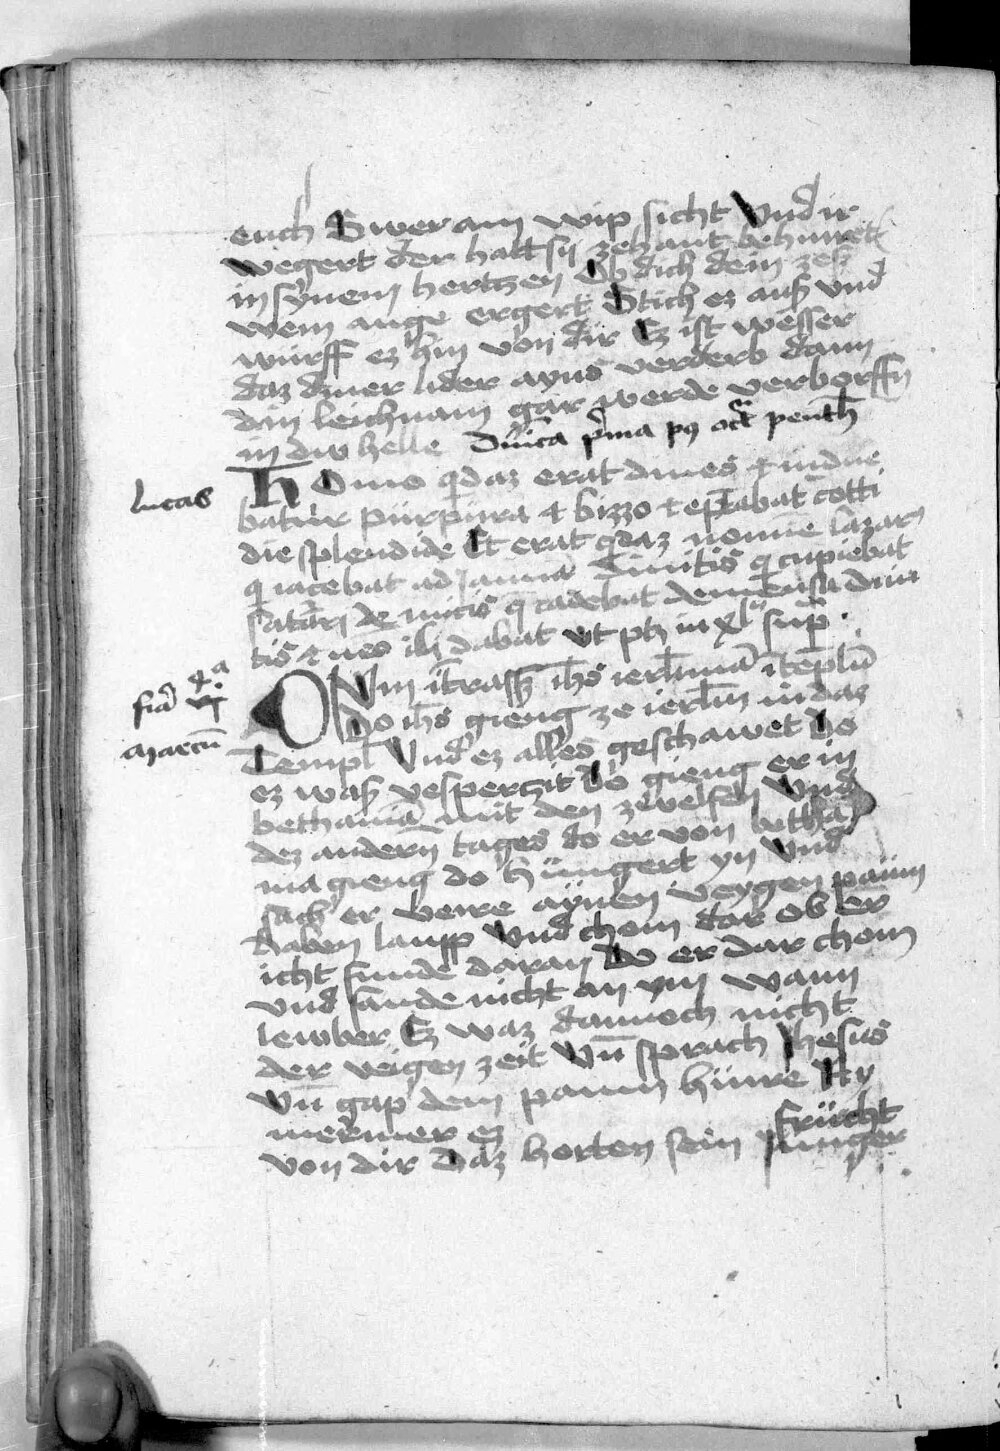 euch Swer ain wip sicht Vnd ir
wegert der hatt sy zehant behuret
in synem hertzen Ob dich dein zes
wem auge ergert Stich ez auß vnd
würff ez hin von dir Ez ist wesser
daz diner lider ayns verderb dann
din leichnam gar werde verborffn
in diw helle Dnica pma p9 oct penth
lucas
HOmo qdaz erat diues ⁊ indue
batur purpura ⁊ bizzo ⁊ eplabat cotti
die splendide Et erat qdaz nomine lazar9
q iacebat ad ianuā diuitis q cupiebat
saturi de micis q cadebat de mensa diui
tis ⁊ neo illi dabat vt ptz in xl supͣ
fia 4a vj
Marcū
CVm itrass ihs ierlimā i teplū
Do ihs gieng ze ierlm in daz
Templ Vnd ez alles geschawet Do
ez waß vesperzit do gieng er in
bethaniā mit den zwelfen Vnd
dez andern tages do er von betha
nia gieng do hungert yn Vnd
sach er verre aynen veygen paum
haben laupp Vnd chom dar ob er
icht funde daran Do er dar chom
vnd fande nicht an ym wann
lewber Ez waz dannoch nicht
der veigen zeit Vn sprach Jhesus
Vn gap dem paum hinre Ny
mermer ez frücht
von dir Daz horten sein junger